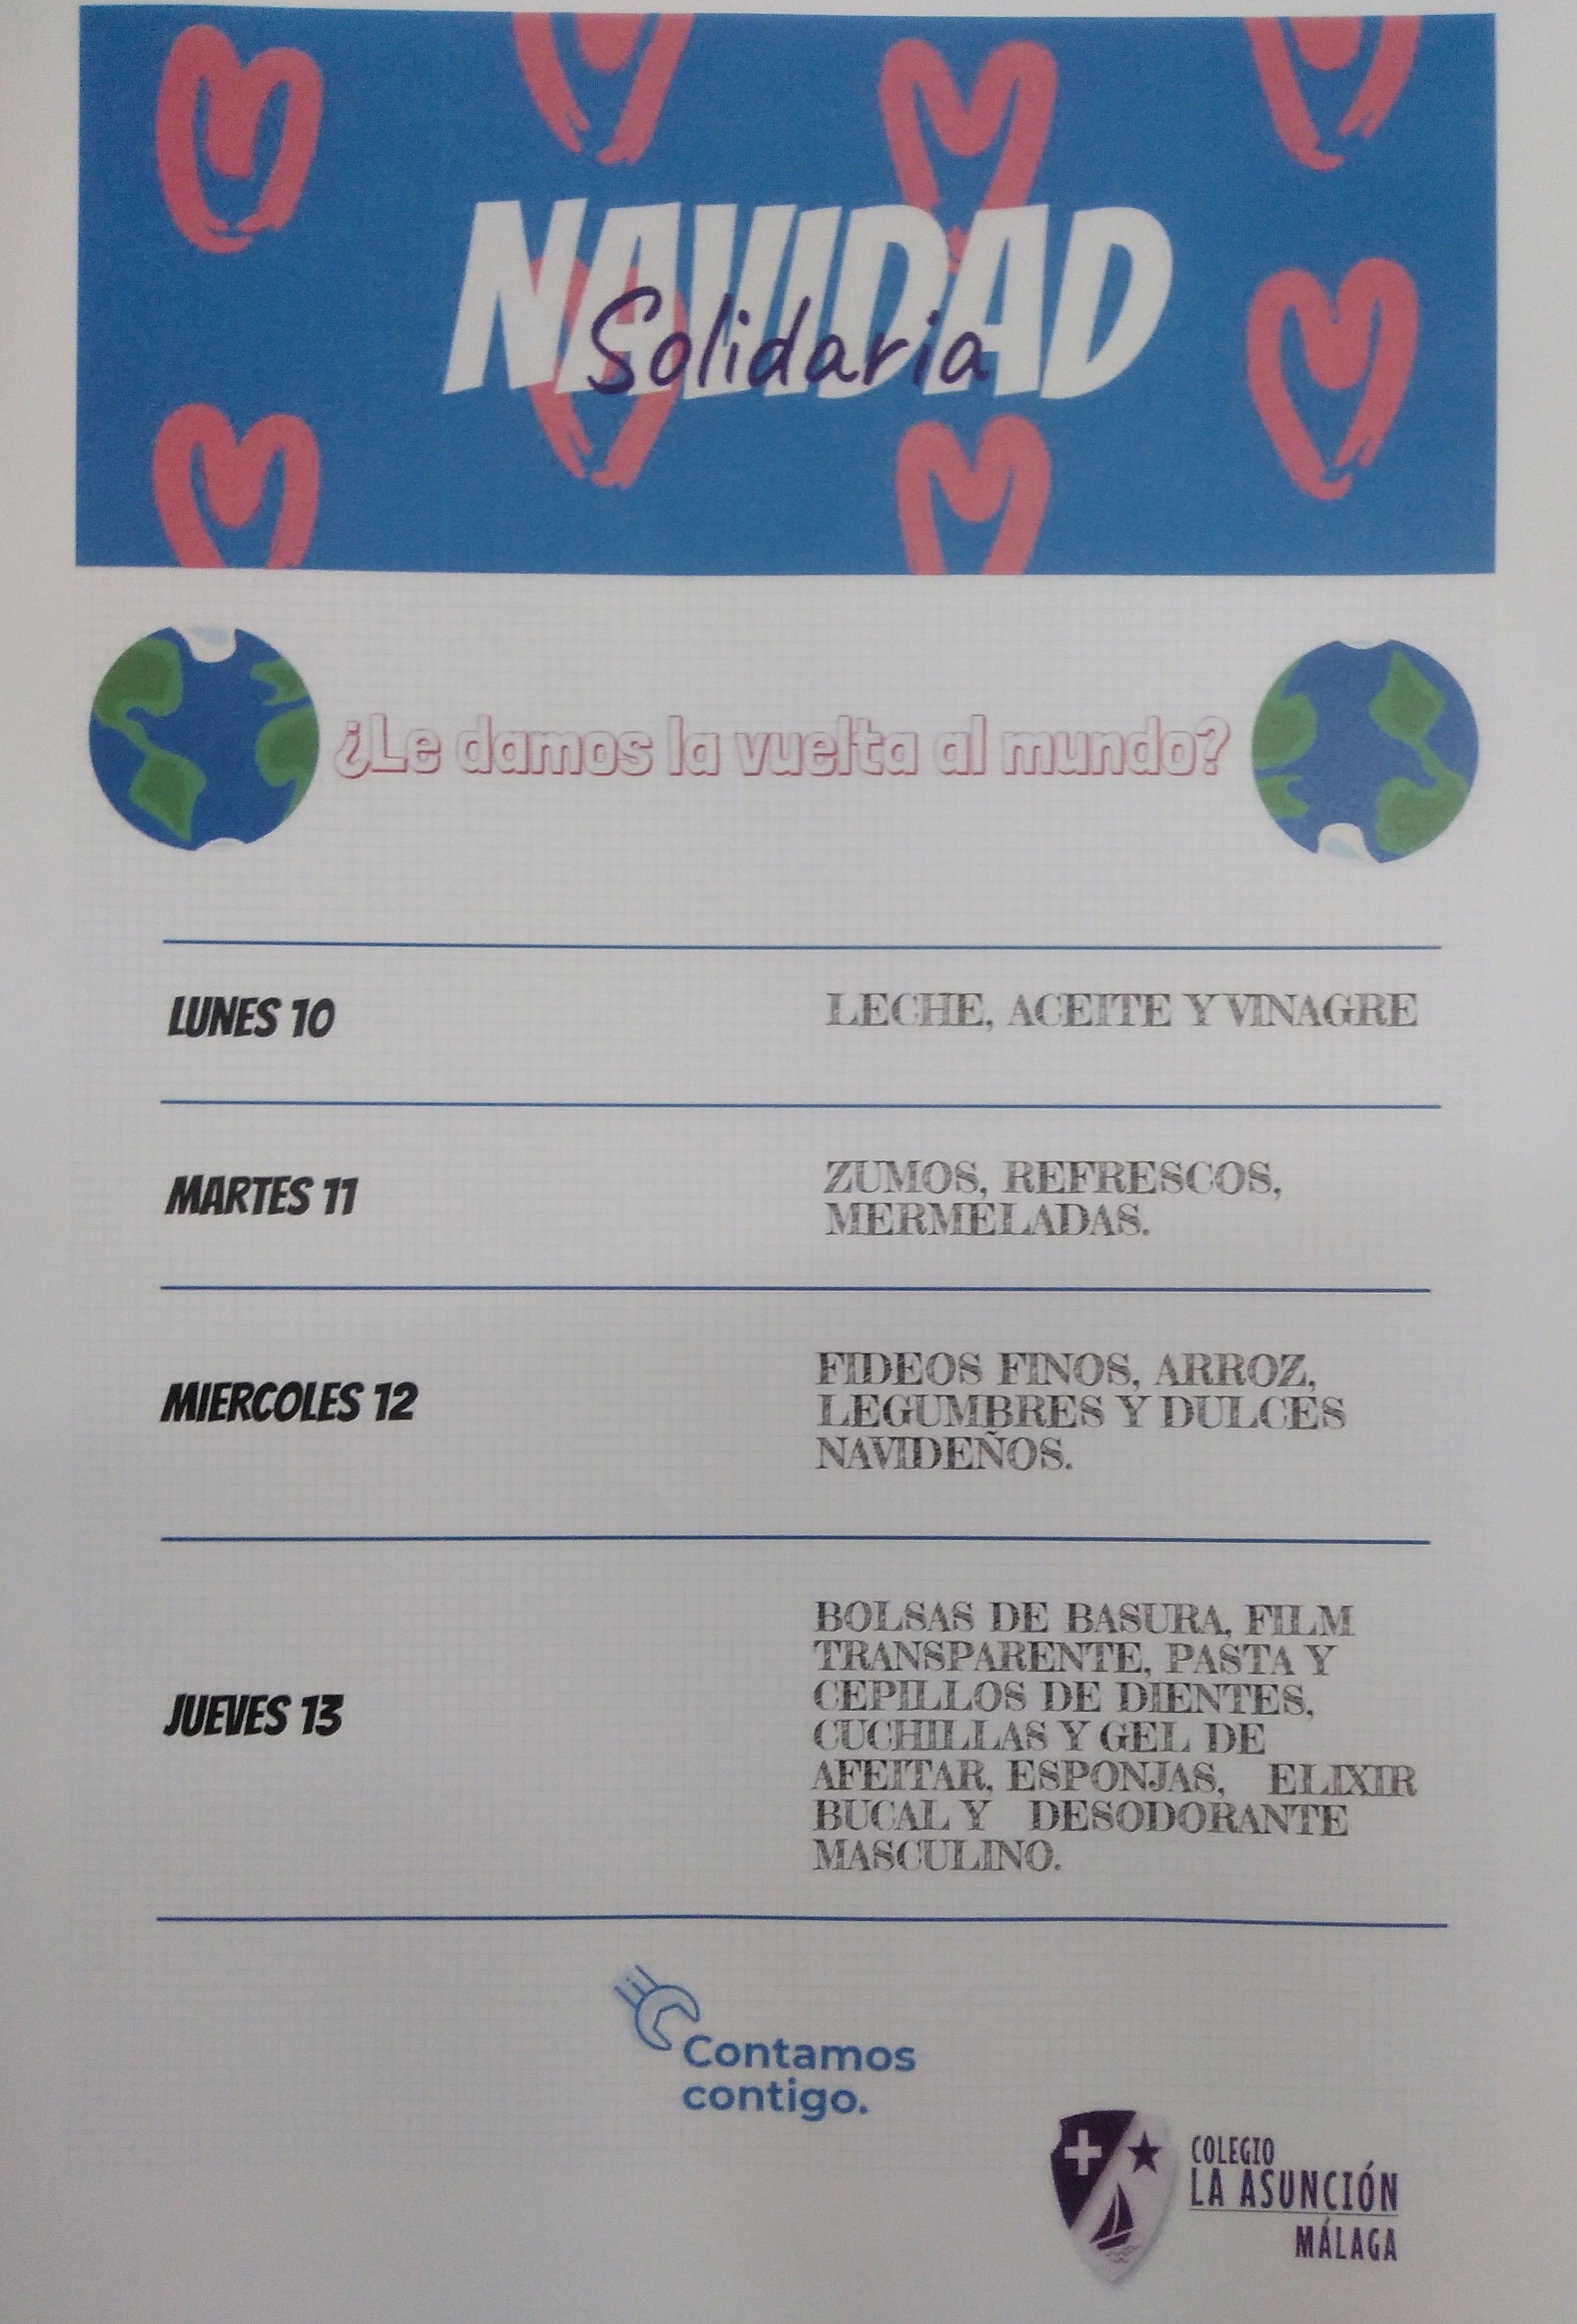 NAVIDAD
Solidaria
¿Le damos la vuelta al mundo?
LUNES 10
LECHE, ACEITE Y VINAGRE
MARTES 11
ZUMOS, REFRESCOS,
MERMELADAS.
MIERCOLES 12
FIDEOS FINOS, ARROZ,
LEGUMBRES Y DULCES
NAVIDEÑOS.
JUEVES 13
BOLSAS DE BASURA, FILM
TRANSPARENTE, PASTA Y
CEPILLOS DE DIENTES,
CUCHILLAS Y GEL DE
AFEITAR, ESPONJAS, ELIXIR
BUCAL Y DESODORANTE
MASCULINO.
Contamos
contigo.
COLEGIO
LA ASUNCIÓN
MÁLAGA